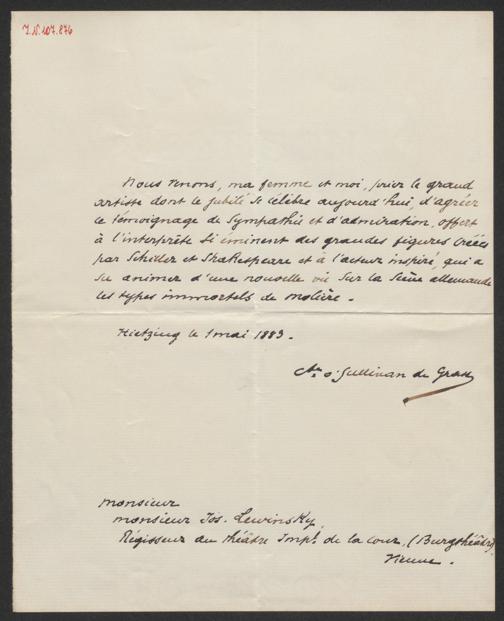 I.N. 107.876
Nous venons, ma femme et moi, prier le grand
artiste dont le jubilé se célèbre aujourd'hui, d'agréer
ce témoignage de sympathie et d'admiration, offert
à l'interprète si éminent des grandes figures créées
par Schiller et Shakespeare et à l'acteur inspiré, qui a
su animer d'une nouvelle vie sur la scène allemande
les types immortels de Molière.
Hietzing le 1 mai 1883.
Cte O'Sullivan de Grass
Monsieur
Monsieur Jos. Lewinsky,
Régisseur au théâtre Impl. de la Cour, (Burgthéâtre)
Vienne.